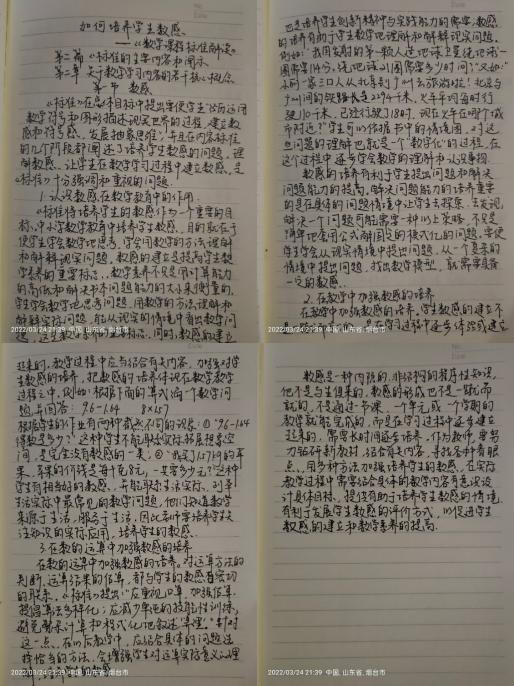 如何培养学生数感
——《数学课程标准解读》
第二篇《标准》的主要内容和阐示
第二章 关于数学学习内容的若干核心概念
第一节 数感
《标准》在总体目标中提出要使学生"经历运用
数学符号和图形描述现实世界的过程,建立数
感和符号感,发展抽象思维",并且在内容标准
的几个学段都阐述了培养学生数感的问题。理
解数感、让学生在数学学习过程中建立数感,是
《标准》十分强调和重视的问题。
1.认识数感在数学教育中的作用
《标准》将培养学生的数感作为一个重要的目
标,中小学数学教育中培养学生数感,目的就在于
使学生学会数学地思考,学会用数学的方法理解
和解释现实问题。数感的建立是提高学生数
学素养的重要标志。数学素养不只是用计算能力
的高低和解决书本问题能力的大小来衡量的。
学生学会数学地思考问题,用数学的方法理解和
解释实际问题,能从现实的情境中看出数学问
题,这是数学素养的重要标志。同时,数感的建立
2022/03/24 21:39 中国, 山东省, 烟台市
也是培养学生创新精神与实践能力的需要。数感
的培养有助于学生数学地理解和解释现实问题。
例如:"我国发射的第一颗人造地球卫星绕地球一
圈需要114分,绕地球21圈需要多少时间?"又如:"
小明一家三口人从北京到广州去旅游啦!北京与
广州间的铁路长是2294千米,火车平均每时行
驶110千米,已经行驶了18时,现在火车在哪个城
市附近?"学生可以依据书中的情境图,对这
些问题的理解也就是一个"数学化"的过程,在
这个过程中逐步学会数学的理解和认识事物。
数感的培养有利于学生提出问题和解决
问题能力的提高。解决问题能力的培养重要
的是在具体的问题情境中让学生去探索、去发现,
解决一个问题可能需要一种以上策略,不只是
简单地套用公式解固定的模式化的问题。要使
学生学会从现实情境中提出问题,从一个复杂的
情境中提出问题,找出数学模型,就需要具备
一定的数感。
2.在教学中加强数感的培养
在教学中加强数感的培养,学生数感的建立不
2022/03/24 21:39 中国, 山东省, 烟台市
起来的,教学过程中应当结合有关内容,加强对学
生数感的培养,把数感的培养体现在教学教学
过程之中。例如:根据下面的算式编一个数学问
题,并回答: 96-164 8×15
根据学生的作业有两种截然不同的现象:①"96-164
得数是多少?"这种学生不能联想实际,都是想象空
间,是完全没有数感的一类;②"我买了15斤的苹
果,苹果的价钱是每千克8元,一共需多少元?"这种学
生有相当好的数感,并能联系生活实际,列举
生活实际中最常见的数学问题,他们知道数学
来源于生活,服务于生活,因此老师要培养学生关
注知识的实际应用,培养学生的数感。
3.在数的运算中加强数感的培养
在数的运算中加强数感的培养。对运算方法的
判断,运算结果的估算,都与学生的数感有密切
的联系,《标准》提出:"应重视口算,加强估算,
提倡算法多样化;应减少单纯的技能性训练,
避免繁杂计算和程式化地叙述'算理'。"针对
这一点,在以后教学中,应结合具体的问题选
择恰当的方法,会增强学生对运算实际意义的理
2022/03/24 21:39 中国, 山东省, 烟台市
数感是一种内隐的、非结构的程序性知识,
他不是与生俱来的,数感的形成也不是一蹴而
就的,不是通过一节课、一个单元或一个学期的
教学就能完成的,而是在学习过程中逐步建立
起来的,需要长时间逐步培养。作为教师,要努
力钻研新教材,结合有关内容,寻找各种着眼
点,用多种方法加强培养学生的数感。在实际
教学过程中需要结合具体的教学内容有意识设
计具体目标,提供有助于培养学生数感的情境,
有利于发展学生数感的评价方式,以促进学生
数感的建立和数学素养的提高。
2022/03/24 21:39 中国, 山东省, 烟台市